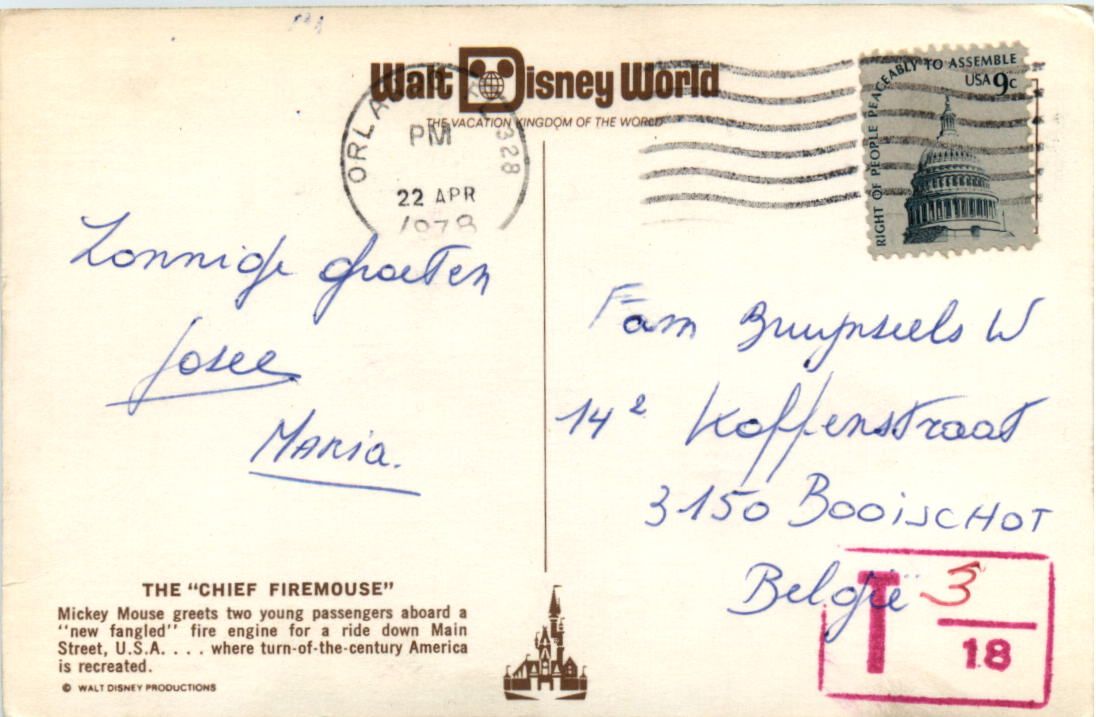 Walt Disney World
THE VACATION KINGDOM OF THE WORLD
ORLA 328
PM
22 APR
1978
RIGHT OF PEOPLE PEACEABLY TO ASSEMBLE
USA 9c
Zonnige groeten
Josee
Maria.
Fam Bruynseels W
14² Koffenstraat
3150 BOOISCHOT
België
T 3
18
THE "CHIEF FIREMOUSE"
Mickey Mouse greets two young passengers aboard a
"new fangled" fire engine for a ride down Main
Street, U.S.A. . . . where turn-of-the-century America
is recreated.
© WALT DISNEY PRODUCTIONS